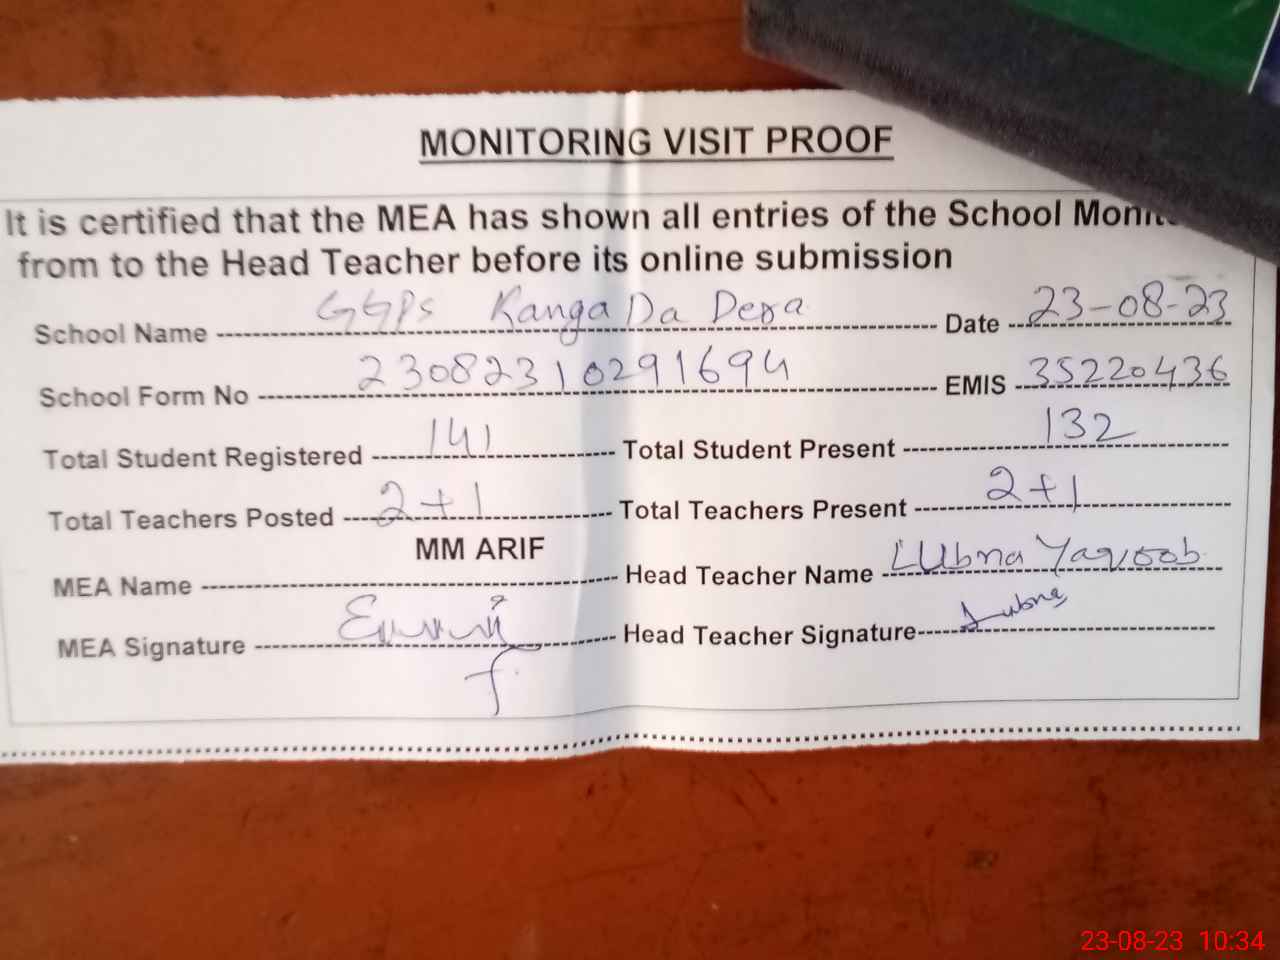 MONITORING VISIT PROOF
It is certified that the MEA has shown all entries of the School
from to the Head Teacher before its online submission
School Name GGPS Ranga Da Dera Date 23-08-23
School Form No 23082310291694 EMIS 35220436
Total Student Registered 141 Total Student Present 132
Total Teachers Posted 2+1 Total Teachers Present 2+1
MM ARIF
MEA Name Head Teacher Name LUbna Yaqoob
MEA Signature Head Teacher Signature Lubna
23-08-23 10:34